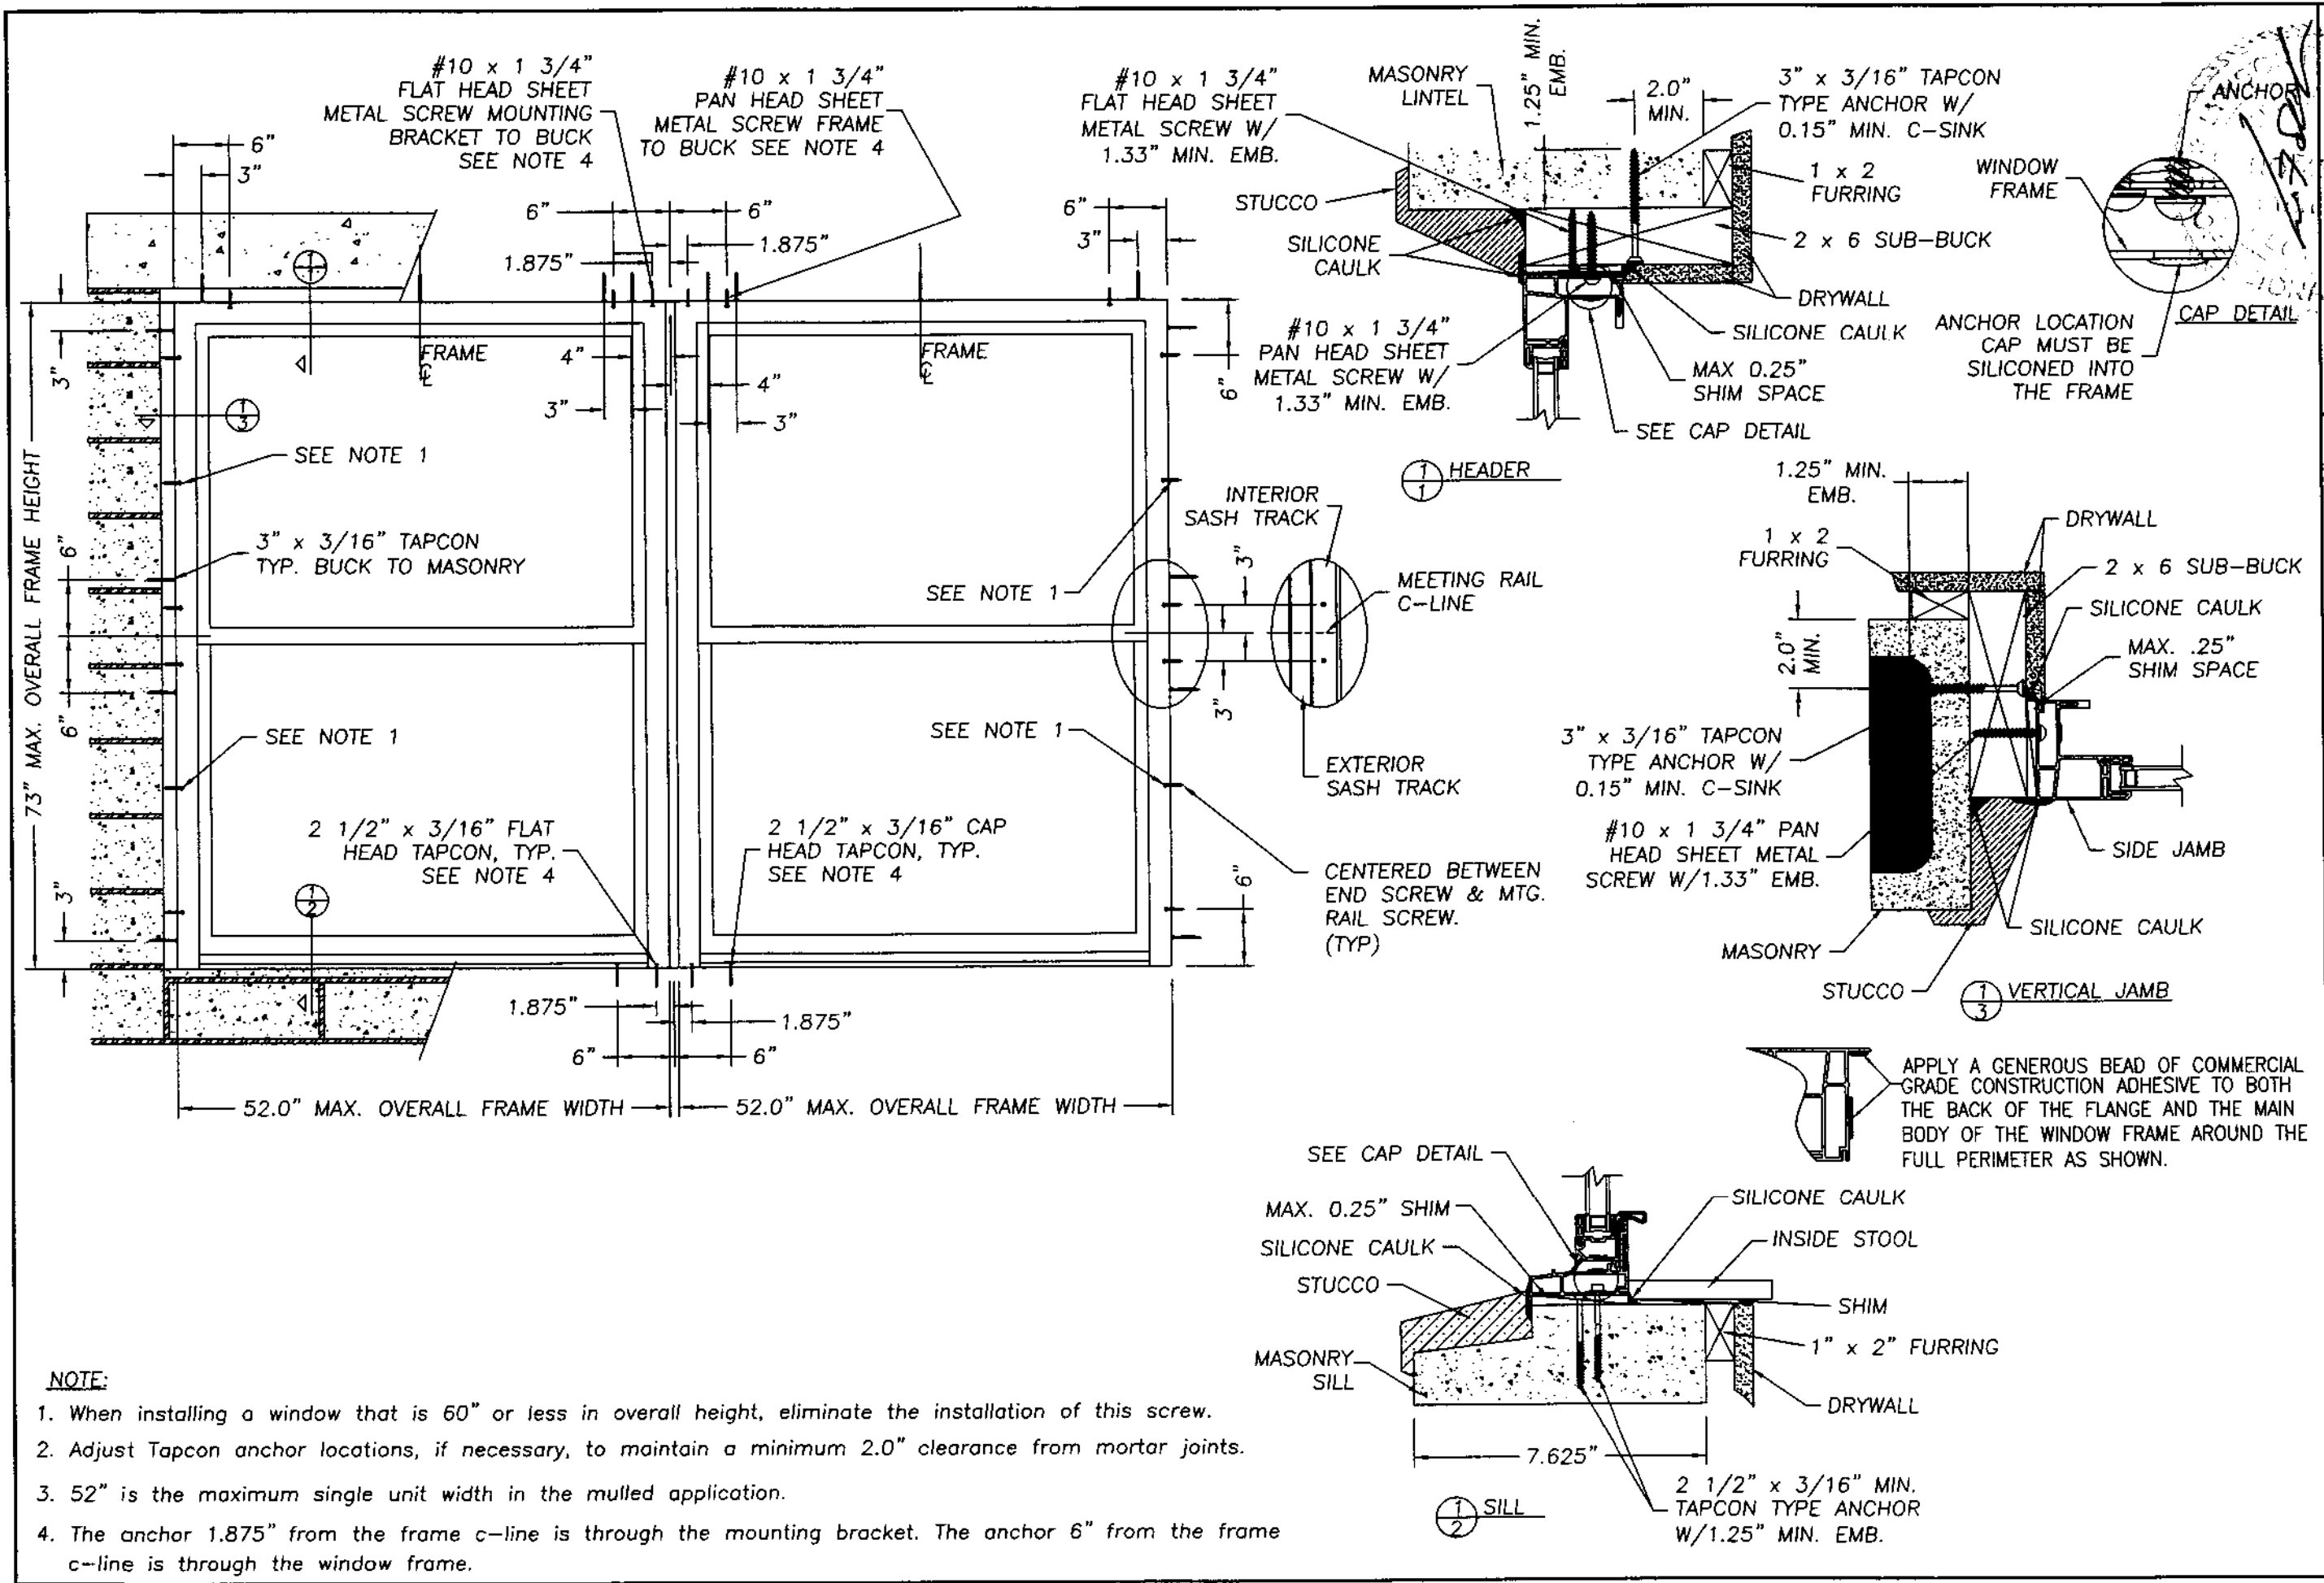 #10 x 1 3/4"
FLAT HEAD SHEET
METAL SCREW MOUNTING
BRACKET TO BUCK
SEE NOTE 4
#10 x 1 3/4"
PAN HEAD SHEET
METAL SCREW FRAME
TO BUCK SEE NOTE 4
6"
3"
6"
6"
1.875"
1.875"
6"
3"
3"
FRAME
FRAME
4"
4"
3"
3"
6"
1
1
1
3
73" MAX. OVERALL FRAME HEIGHT
SEE NOTE 1
3" x 3/16" TAPCON
TYP. BUCK TO MASONRY
6"
6"
SEE NOTE 1
SEE NOTE 1
SEE NOTE 1
3"
3"
INTERIOR
SASH TRACK
MEETING RAIL
C-LINE
EXTERIOR
SASH TRACK
CENTERED BETWEEN
END SCREW & MTG.
RAIL SCREW.
(TYP)
6"
2 1/2" x 3/16" FLAT
HEAD TAPCON, TYP.
SEE NOTE 4
2 1/2" x 3/16" CAP
HEAD TAPCON, TYP.
SEE NOTE 4
3"
1
2
1.875"
1.875"
6"
6"
52.0" MAX. OVERALL FRAME WIDTH
52.0" MAX. OVERALL FRAME WIDTH
#10 x 1 3/4"
FLAT HEAD SHEET
METAL SCREW W/
1.33" MIN. EMB.
MASONRY
LINTEL
1.25" MIN.
EMB.
2.0"
MIN.
3" x 3/16" TAPCON
TYPE ANCHOR W/
0.15" MIN. C-SINK
1 x 2
FURRING
2 x 6 SUB-BUCK
DRYWALL
SILICONE CAULK
MAX 0.25"
SHIM SPACE
SEE CAP DETAIL
STUCCO
SILICONE
CAULK
#10 x 1 3/4"
PAN HEAD SHEET
METAL SCREW W/
1.33" MIN. EMB.
1
1
HEADER
ANCHOR
WINDOW
FRAME
CAP DETAIL
ANCHOR LOCATION
CAP MUST BE
SILICONED INTO
THE FRAME
1.25" MIN.
EMB.
1 x 2
FURRING
DRYWALL
2 x 6 SUB-BUCK
SILICONE CAULK
MAX. .25"
SHIM SPACE
2.0"
MIN.
3" x 3/16" TAPCON
TYPE ANCHOR W/
0.15" MIN. C-SINK
#10 x 1 3/4" PAN
HEAD SHEET METAL
SCREW W/1.33" EMB.
SIDE JAMB
SILICONE CAULK
MASONRY
STUCCO
1
3
VERTICAL JAMB
APPLY A GENEROUS BEAD OF COMMERCIAL
GRADE CONSTRUCTION ADHESIVE TO BOTH
THE BACK OF THE FLANGE AND THE MAIN
BODY OF THE WINDOW FRAME AROUND THE
FULL PERIMETER AS SHOWN.
SEE CAP DETAIL
MAX. 0.25" SHIM
SILICONE CAULK
STUCCO
MASONRY
SILL
SILICONE CAULK
INSIDE STOOL
SHIM
1" x 2" FURRING
DRYWALL
7.625"
2 1/2" x 3/16" MIN.
TAPCON TYPE ANCHOR
W/1.25" MIN. EMB.
1
2
SILL
NOTE:
1. When installing a window that is 60" or less in overall height, eliminate the installation of this screw.
2. Adjust Tapcon anchor locations, if necessary, to maintain a minimum 2.0" clearance from mortar joints.
3. 52" is the maximum single unit width in the mulled application.
4. The anchor 1.875" from the frame c-line is through the mounting bracket. The anchor 6" from the frame
c-line is through the window frame.